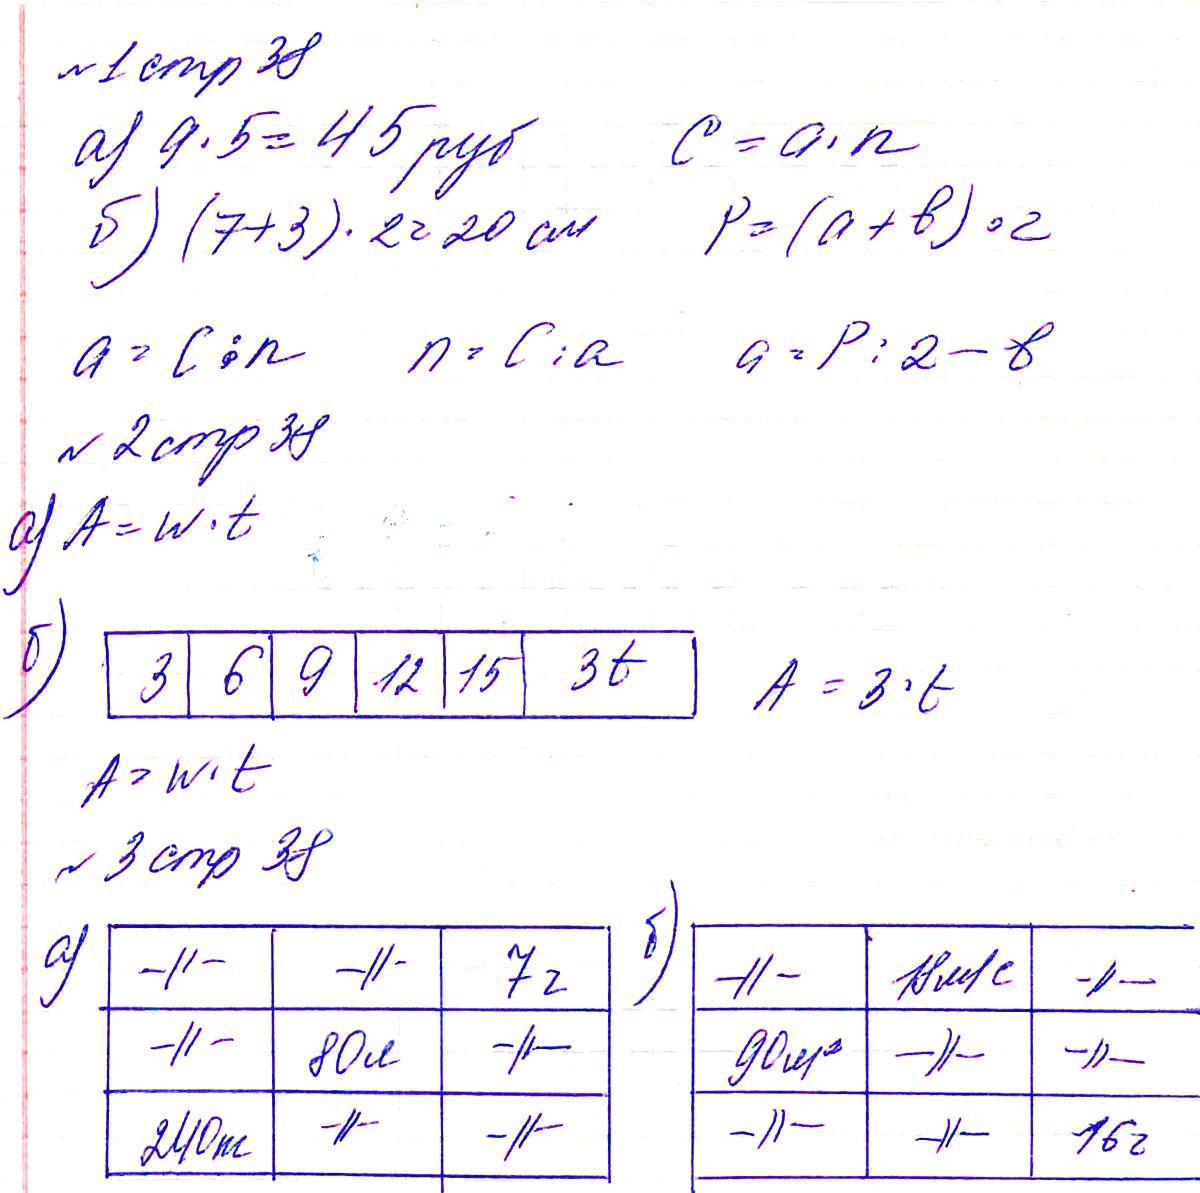 №1 стр 38
а) 9·5=45 руб C=a·n
б) (7+3)·2=20 см P=(a+b)·2
a=C:n n=C:a a=P:2-b
№2 стр 38
а) A=w·t
б) 3 6 9 12 15 3t A=3·t
A=w·t
№3 стр 38
а) -//- -//- 7ч б) -//- 18м/с -//-
-//- 80м -//- 90м³ -//- -//-
240т -//- -//- -//- -//- 16ч